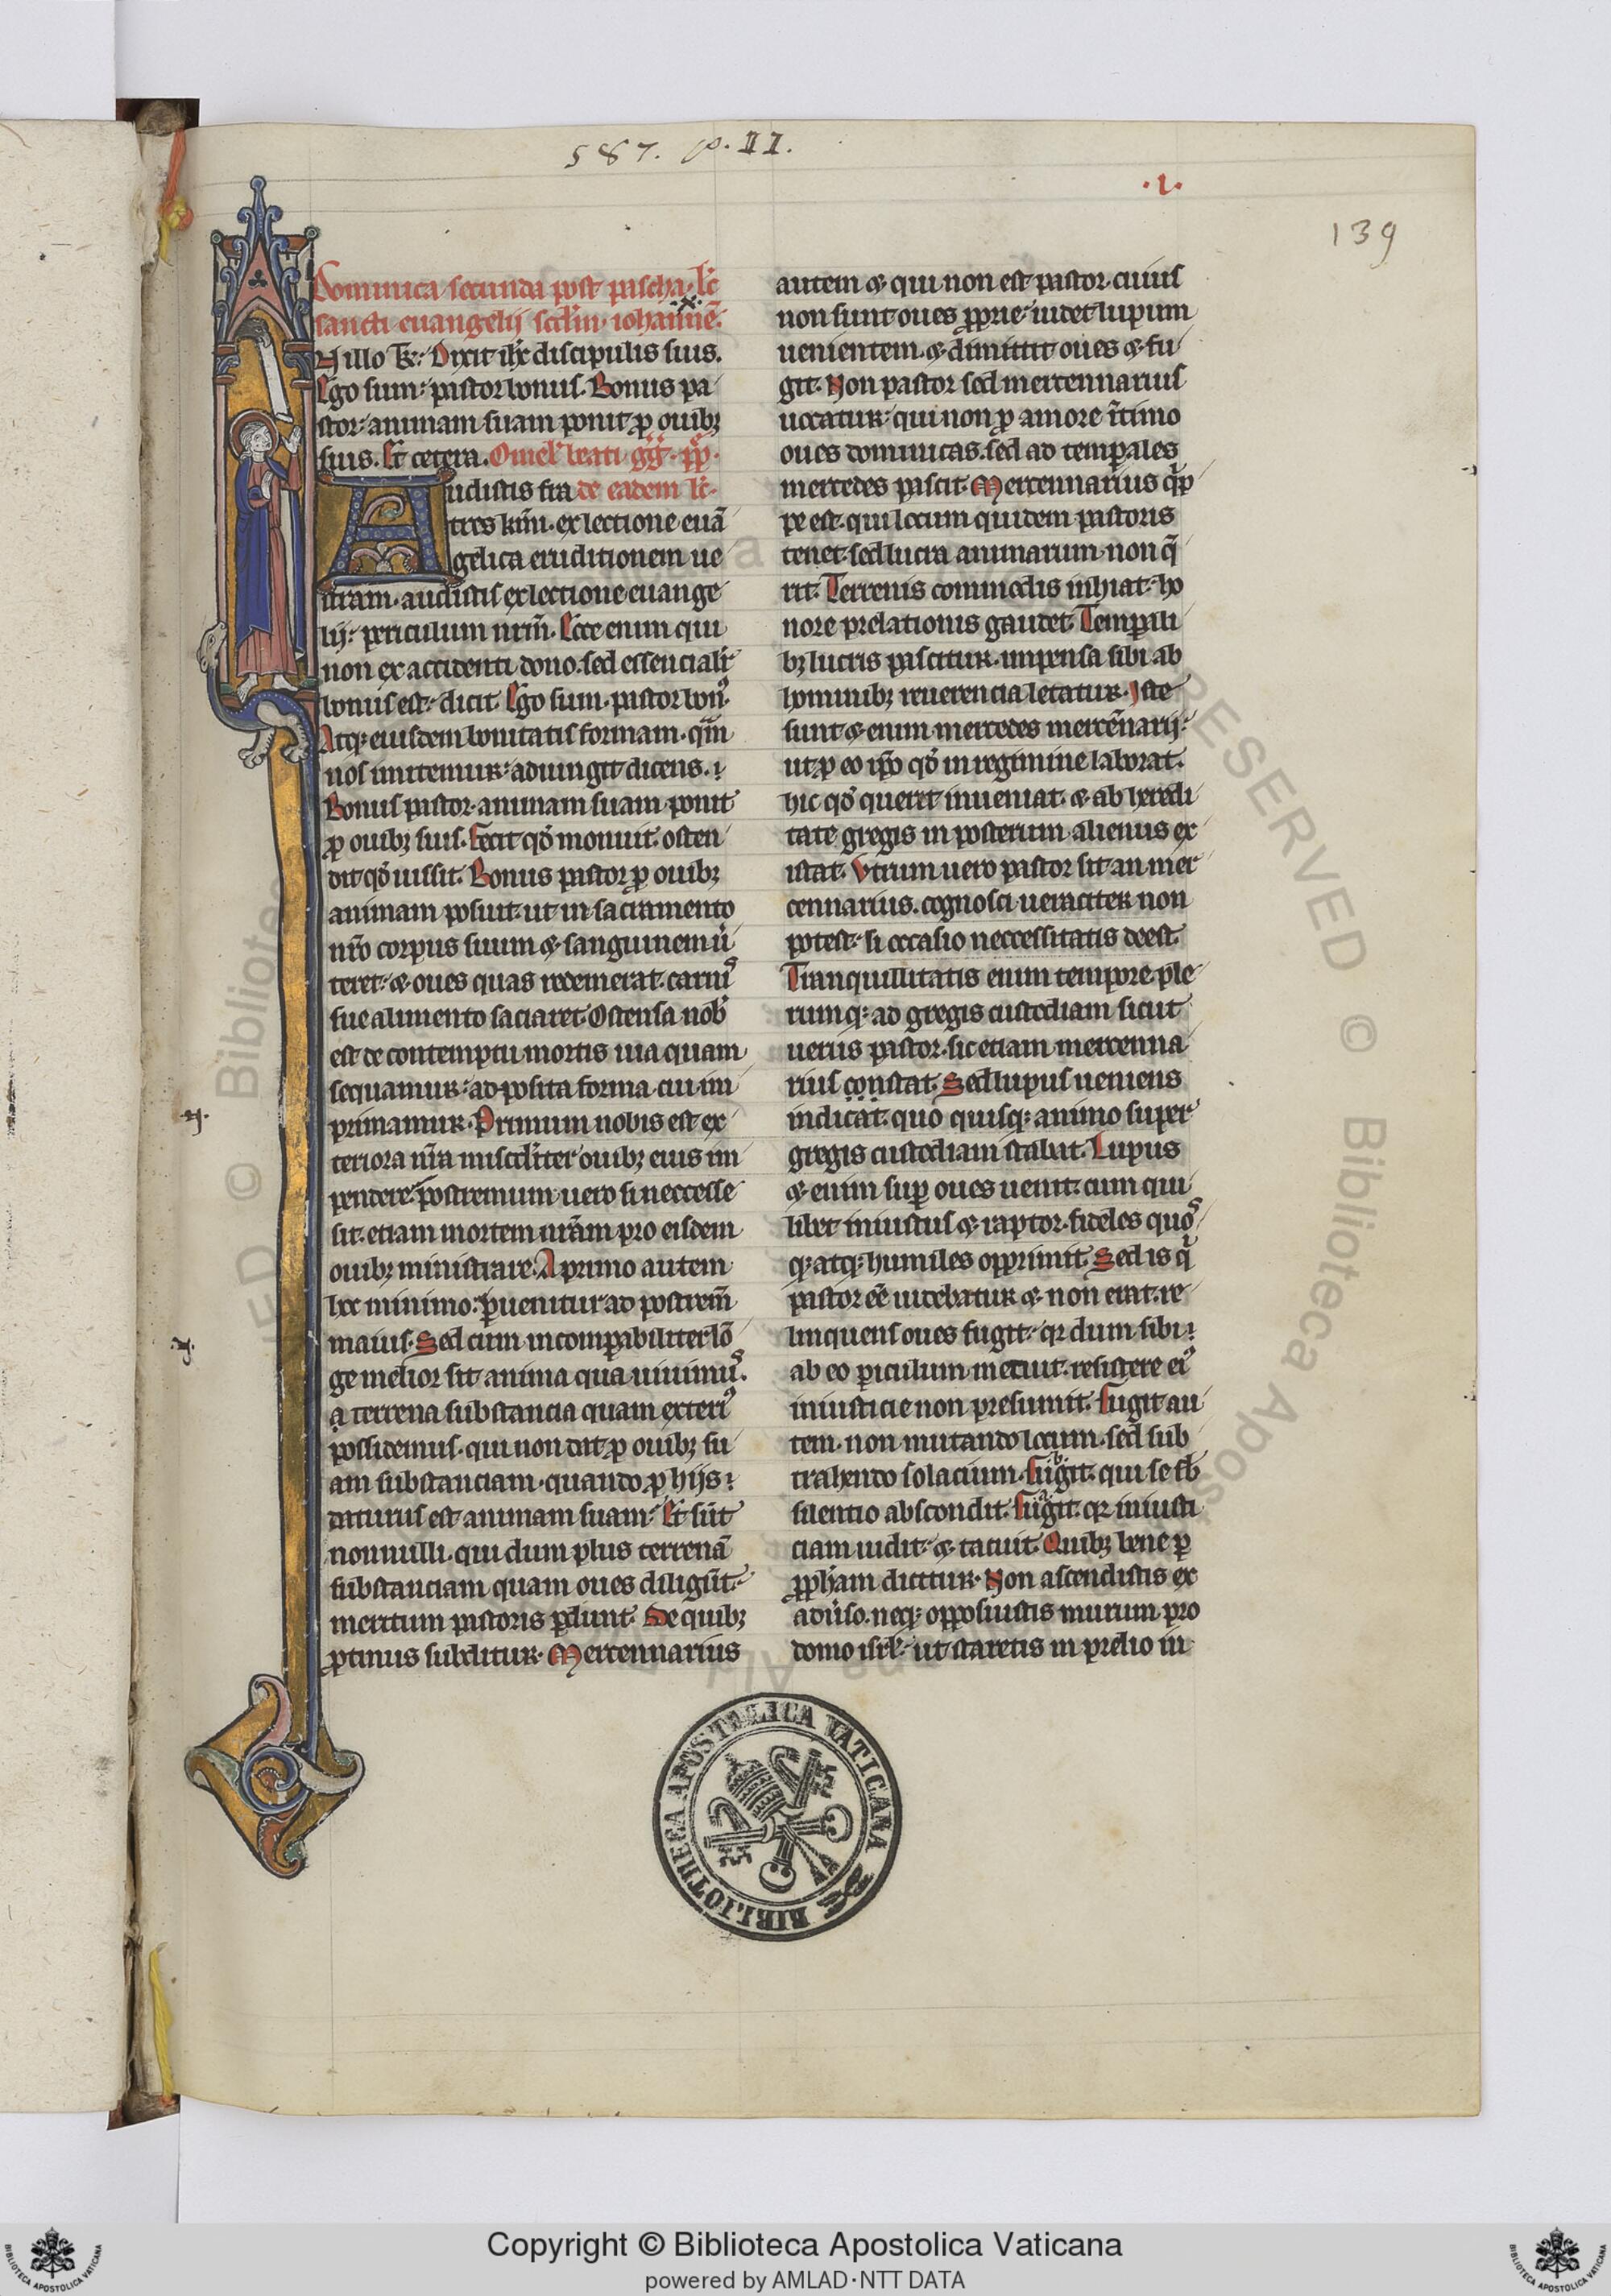 587. p. II.
.I.
139
Dominica secunda post pascha. lc̄
sancti euangelij scdm̄. iohannē.
N illo t̄: Dixit ih̄c discipulis suis.
Ego sum: pastor bonus. Bonus pa
stor: animam suam ponit ꝓ ouibꝫ
suis. Et cetera. Omel' beati ḡḡ. p̄p̄.
Audistis fra de eadem lc̄.
tres km̄. ex lectione euā
gelica eruditionem ue
stram. audistis ex lectione euange
lij: periculum nr̄m̄. Ecce enim qui
non ex accidenti dono. sed essencialit̄
bonus est: dicit. Ego sum. pastor bonꝰ.
Atqꝫ eiusdem bonitatis formam. qm̄
nos imitemur: adiungit dicens.
Bonus pastor. animam suam ponit
ꝓ ouibꝫ suis. Fecit qd̄ monuit. osten
dit qd̄ iussit. Bonus pastor ꝓ ouibꝫ
animam posuit. ut in sacramento
nr̄o corpus suum ⁊ sanguinem ū
teret: ⁊ oues quas redemerat. carnis
sue alimento saciaret. Ostensa nob̄
est de contemptu mortis uia quam
sequamur: adposita forma. cui im
primamur. Primum nobis est ex
teriora nr̄a miscd̄iter ouibꝫ eius im
pendere: postremum uero si neccesse
sit. etiam mortem nr̄am pro eisdem
ouibꝫ ministrare. A primo autem
hoc minimo: ꝑuenitur ad postrem̄
maius. Sed cum incomꝑabiliter lō
ge melior sit anima qua uiuimꝰ.
a terrena substancia quam exteriꝰ
possidemus. qui non dat ꝓ ouibꝫ su
am substanciam. quando ꝓ hijs
daturus est animam suam? Et sūt
nonnulli. qui dum plus terrenā
substanciam quam oues diligūt.
meritum pastoris ꝑdunt. De quibꝫ
ꝓtinus subditur. Mercennarius
autem ⁊ qui non est pastor. cuius
non sunt oues ꝓprie: uidet lupum
uenientem. ⁊ dimittit oues ⁊ fu
git. Non pastor sed mercennarius
uocatur: qui non ꝓ amore ītimo
oues dominicas. sed ad temꝑales
mercedes pascit. Mercennarius qīp
pe est. qui locum quidem pastoris
tenet. sed lucra animarum. non q̄
rit. Terrenis commodis inhiat. ho
nore prelationis gaudet. Temꝑali
bꝫ lucris pascitur. impensa sibi ab
hominibꝫ reuerencia letatur. Iste
sunt ⁊enim mercedes mercēnarij:
ut ꝓ eo ip̄o qd̄ in regimine laborat.
hic qd̄ querit inueniat. ⁊ ab heredi
tate gregis in posterum alienus ex
istat. Vtrum uero pastor sit an mer
cennarius. cognosci ueraciter non
potest. si occasio neccessitatis deest.
Tranquillitatis enim tempore. ple
rumqꝫ ad gregis custodiam sicut
uerus pastor. sic etiam mercenna
rius constat. Sed lupus ueniens
indicat. quo quisqꝫ animo super
gregis custodiam stabat. Lupus
⁊enim suꝑ oues uenit. cum qui
libet iniustus ⁊ raptor. fideles quos
qꝫ atqꝫ humiles opprimit. Sed is q̄
pastor eē uidebatur ⁊ non erat. re
linquens oues fugit: qr dum sibi
ab eo ꝑiculum metuit. resistere eiꝰ
iniusticie non presumit. Fugit au
tem. non mutando locum. sed sub
trahendo solacium. Fugit. qui se sb̄
silentio abscondit. Fugit. qr iniusti
ciam uidit. ⁊ tacuit. Quibꝫ bene ꝑ
ꝓph̄am dicitur. Non ascendistis ex
adūso. neqꝫ opposuistis murum pro
domo isrl̄. ut staretis in prelio in
BIBLIOTHECA APOSTOLICA VATICANA
Copyright © Biblioteca Apostolica Vaticana
powered by AMLAD·NTT DATA